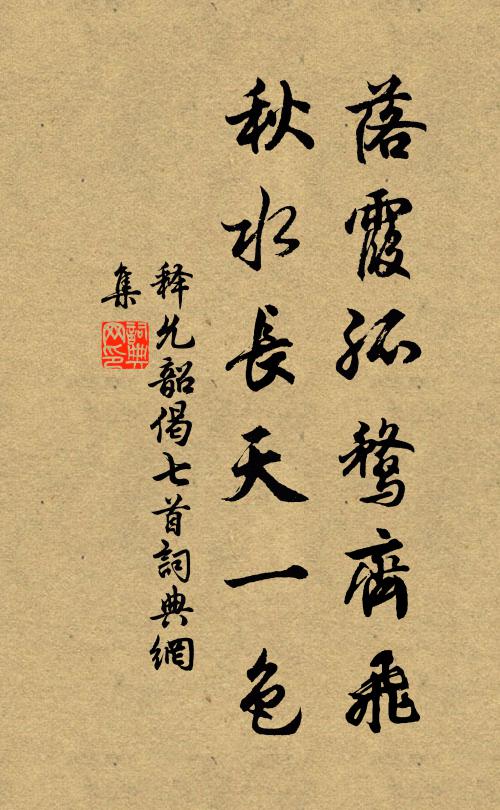 落霞孤鶩齊飛
秋水長天一色
释允韶偈七首詞典網
集
詞典
网印